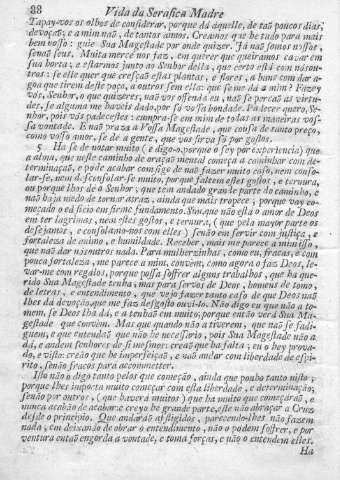 88 Vida da Serafica Madre
Tapay-vos os olhos de considerar, porque dá áquelle, de taõ poucos dias,
devoçaõ; e a mim naõ, de tantos annos. Creamos que he tudo para mais
bem vosso: guie Sua Magestade por onde quizer. Já naõ somos nossos,
senaõ seus. Muita merce nos faz, em querer que queiramos cavar em
sua horta; e estarmos junto ao Senhor della, que certo está com nós ou-
tros: se elle quer que cresçaõ estas plantas, e flores, a huns com dar a-
goa que tirem deste poço, a outros sem ella: que se me dá a mim? Fazey
vós, Senhor, o que quizeres, naõ vos offenda eu, naõ se percaõ as virtu-
des, se alguma me haveis dado, por só vossa bondade. Padecer quero, Se-
nhor, pois vós padecestes: cumpra-se em mim de todas as maneiras vos-
sa vontade. E naõ praza a Vossa Magestade, que cousa de tanto preço,
como vosso amor, se dê a gente, que vos sirva só por gostos.
5 Ha se de notar muito (e digo-o, porque o sey por experiencia) que
a alma, que neste caminho de oraçaõ mental começa a caminhar com de-
terminaçaõ, e pode acabar comsigo de naõ fazer muito caso, nem conso-
lar-se, nem desconsolar-se muito, porque faltem estes gostos, e ternura,
ou porque lhos dê o Senhor; que tem andado grande parte do caminho, e
naõ haja medo de tornar atraz, ainda que mais tropece; porque vay co-
meçado o edificio em firme fundamento. Sim, que naõ está o amor de Deos
em ter lagrimas, nem estes gostos, e ternura, (que pela mayor parte os
desejamos, e consolamo-nos com elles) senaõ em servir com justiça, e
fortaleza de animo, e humildade. Receber, mais me parece a mim isso,
que naõ dar nós outros nada. Para mulherzinhas, como eu, fracas, e com
pouca fortaleza, me parece a mim, convém, como agora o faz Deos, le-
var-me com regalos, porque possa soffrer alguns trabalhos, que ha que-
rido Sua Magestade tenha; mas para servos de Deos, homens de tomo,
de letras, e entendimento, que vejo fazer tanto caso de que Deos naõ
lhes dá devoçaõ, que me faz desgosto ouvi-lo. Naõ digo eu que naõ a to-
mem, se Deos lha dá, e a tenhaõ em muito; porque entaõ verá Sua Ma-
gestade que convém. Mas que quando naõ a tiverem, que naõ se fadi-
guem; e que entendaõ que naõ he necessario, pois Sua Magestade naõ a
dá, e andem senhores de si mesmos: creaõ que ha falta; eu o hey prova-
do, e visto: creaõ que he imperfeiçaõ, e naõ andar com liberdade de espi-
rito, senaõ fracos para accommetter.
Isto naõ o digo tanto pelos que começaõ, ainda que ponho tanto nisto;
porque lhes importa muito começar com esta liberdade, e determinaçaõ,
senaõ por outros, (que haverá muitos) que ha muito que começáraõ, e
nunca acabaõ de acabar: e creyo he grande parte, este naõ abraçar a Cruz
desde o principio. Que andaráõ affligidos, parecendo-lhes naõ fazem
nada; em deixando de obrar o entendimento, naõ o podem soffrer, e por
ventura entaõ engorda a vontade, e toma forças, e naõ o entendem elles.
Ha